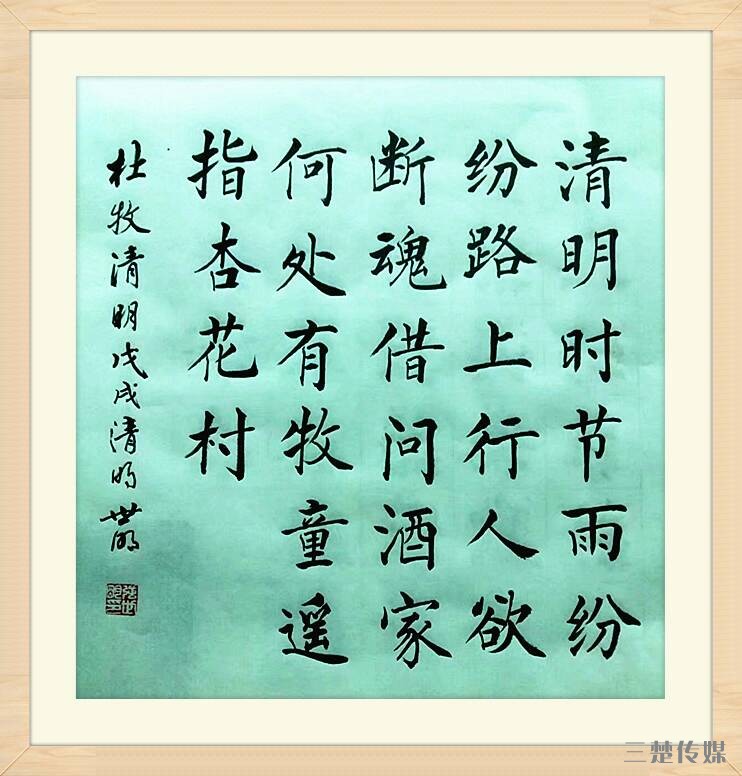 清明时节雨纷
纷路上行人欲
断魂借问酒家
何处有牧童遥
指杏花村
杜牧清明戊戌清明世明
三楚传媒